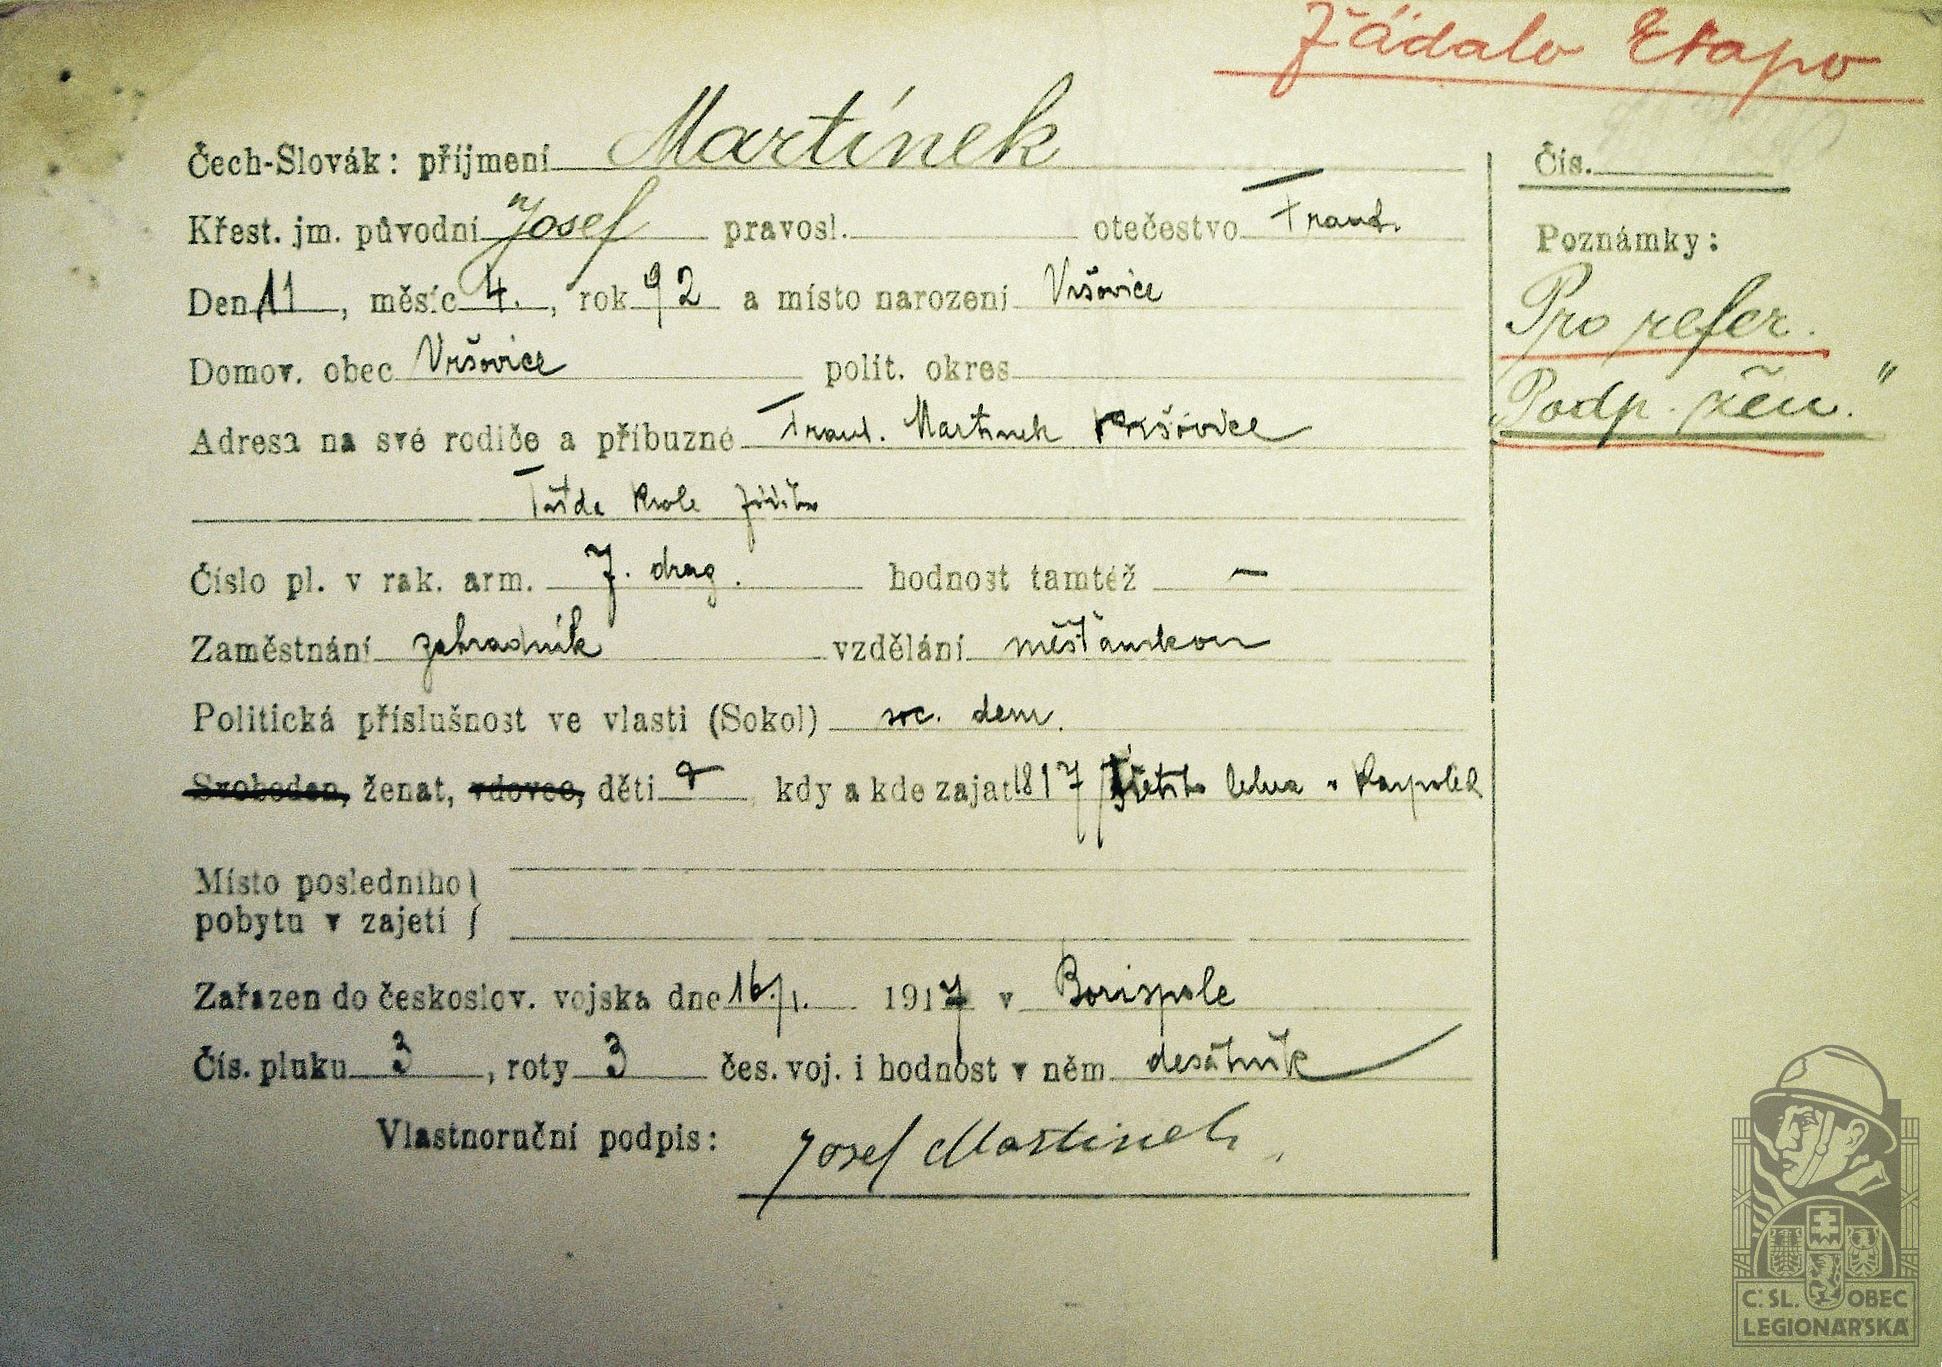 Žádalo Etapo
Čech-Slovák: příjmení Martínek
Čís.
Křest. jm. původní Josef pravosl. otečestvo Frant.
Poznámky:
Den 11, měsíc 4., rok 92 a místo narození Vršovice
Pro refer.
Domov. obec Vršovice polit. okres
Podp. žen."
Adresa na své rodiče a příbuzné Frant. Martinek Vršovice
Třída Krále Jiřího
Číslo pl. v rak. arm. 7. drag. hodnost tamtéž —
Zaměstnání zahradník vzdělání měšťanskou
Politická příslušnost ve vlasti (Sokol) soc. dem.
Svoboden, ženat, vdovec, děti kdy a kde zajat
Místo posledního
pobytu v zajetí
Zařazen do českoslov. vojska dne 16./1. 1917 v Borispole
Čís. pluku 3, roty 3 čes. voj. i hodnost v něm desátník
Vlastnoruční podpis: Josef Martinek
Č. SL. OBEC
LEGIONÁŘSKÁ